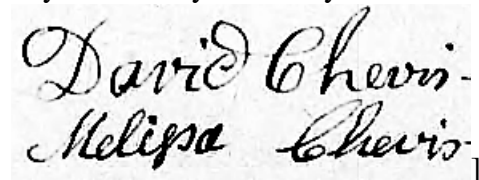 David Chevis
Melissa Chevis
]